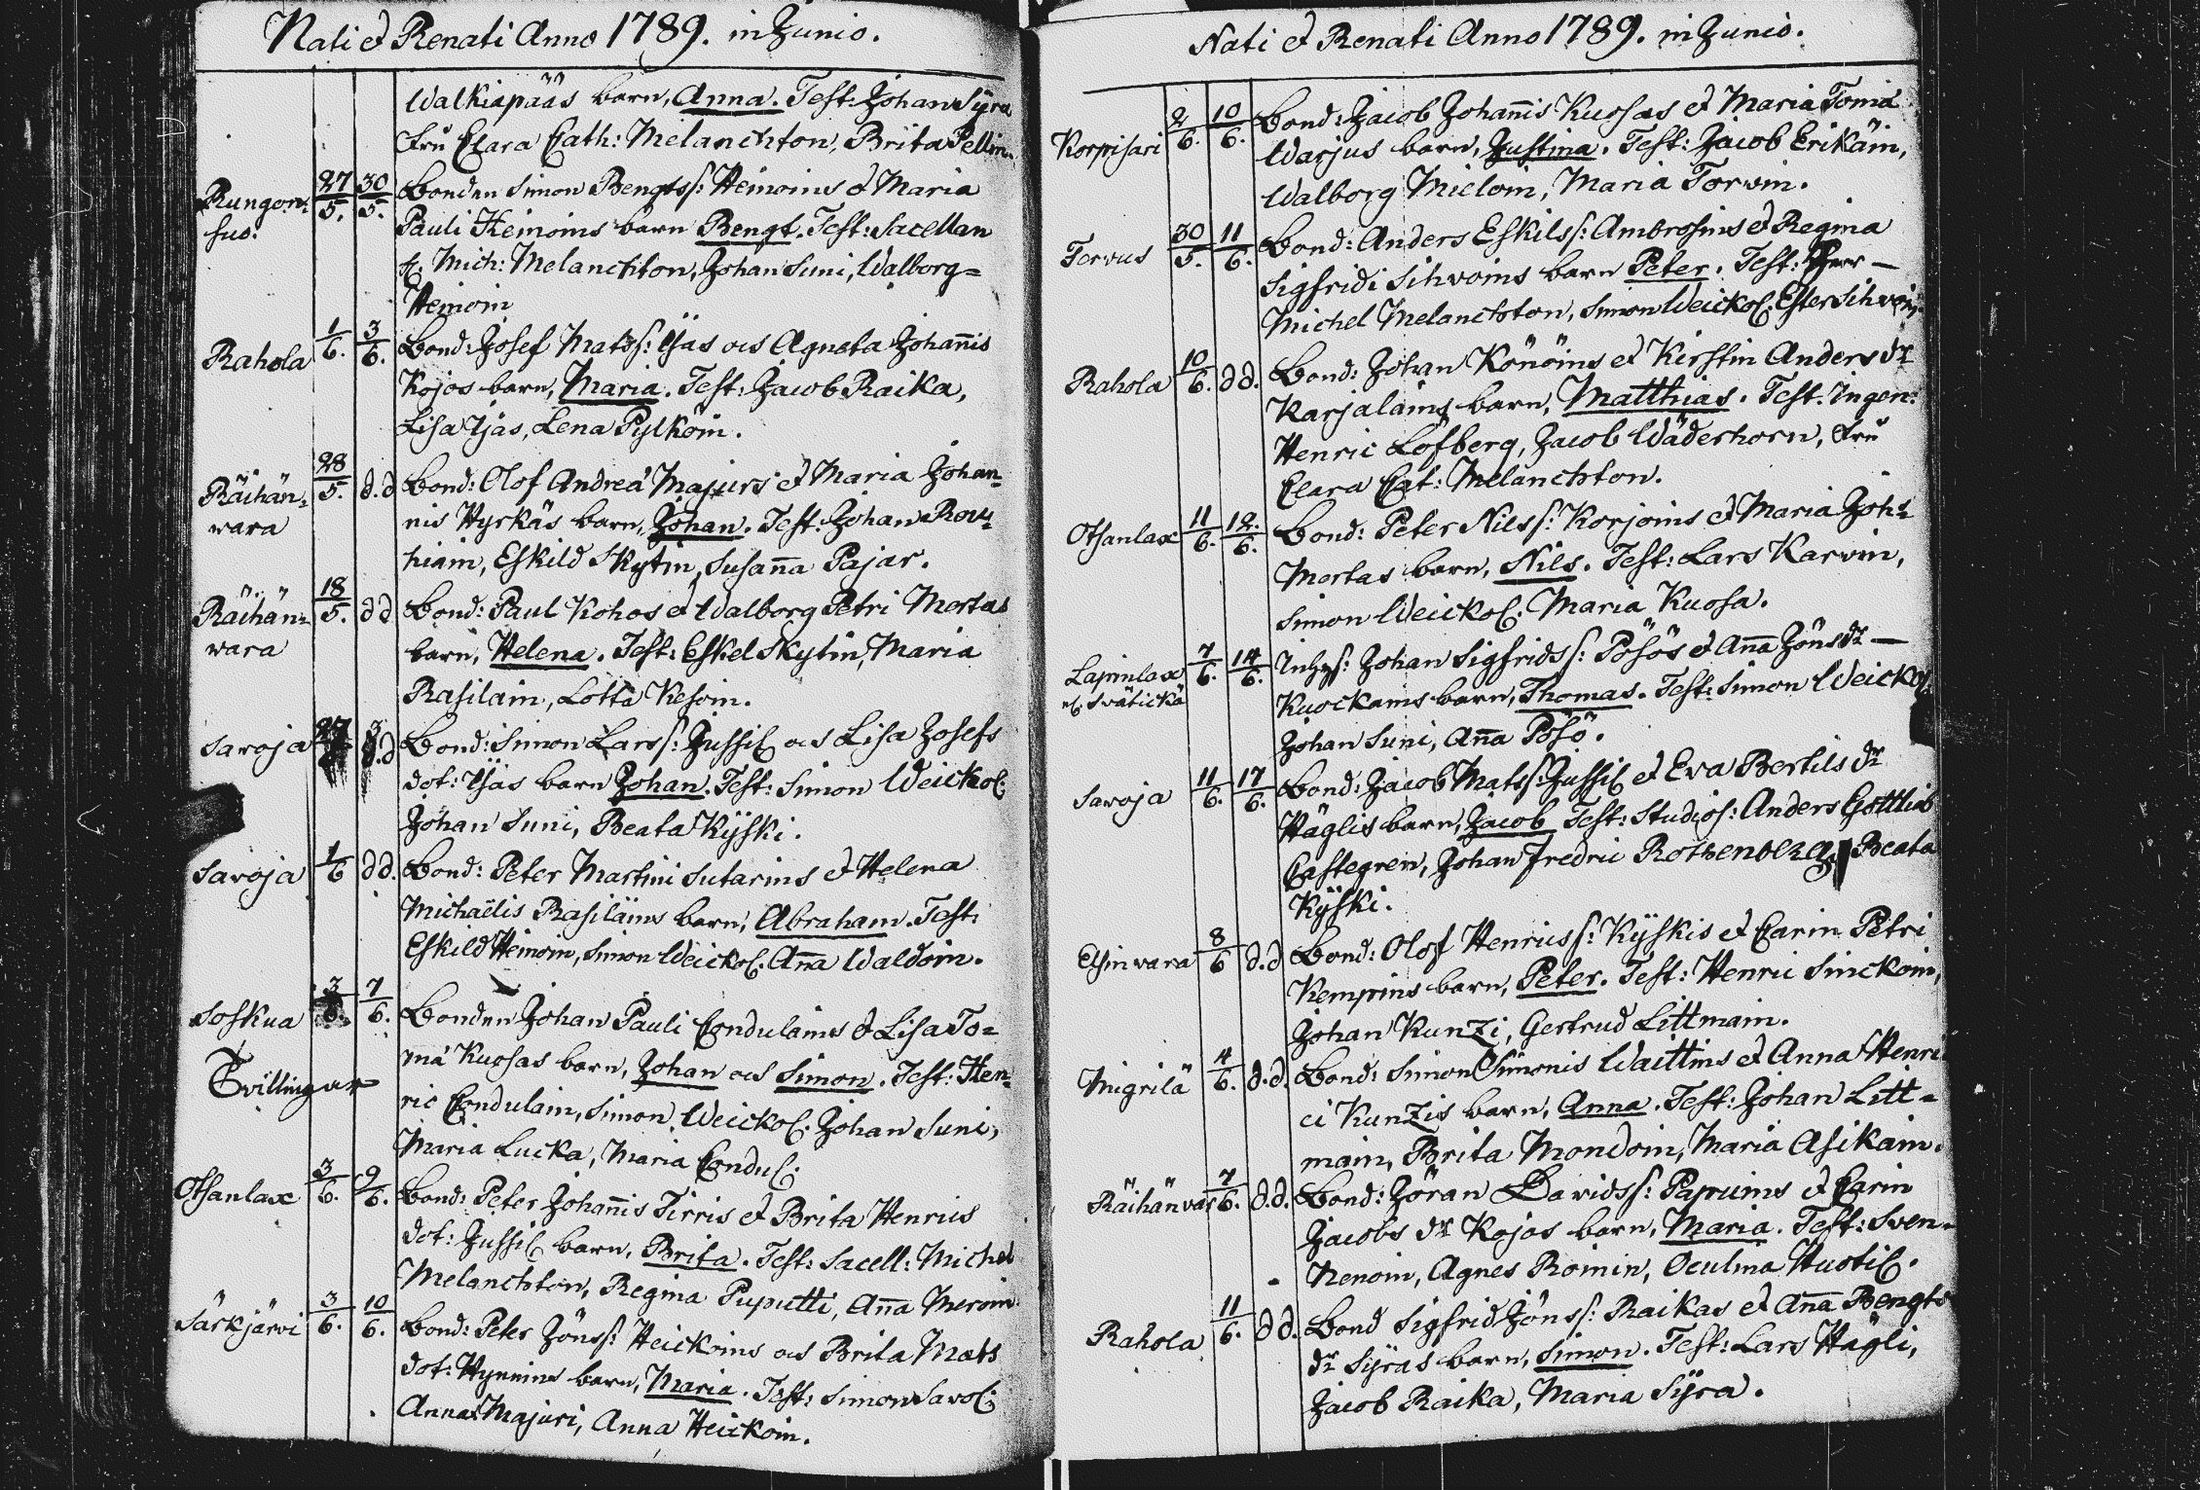 Nati et Renati Anno 1789. in Junio.
Walkiapääs barn, Anna. Test: Johan Syra
Fru Clara Cath: Melanchton, Brita Pellin.
Rungon: 27/5. 30/5. Bonden Simon Bengtss: Heinoins et Maria
suo: Pauli Heinoins barn Bengt. Test: Sacellan
H: Mich: Melanchton, Johan Suni, Walborg=
Heinoin
Rahola 1/6. 3/6. Bond: Josef Matss: Ijäs och Agneta Johannis
Kojos barn, Maria. Test: Jacob Raika,
Lisa Ijäs, Lena Pylköin.
Räihän= 28/5. d.d Bond: Olof Andreä Majurs et Maria Johan=
wara nis Hyrkäs barn, Johan. Test: Johan Rou=
hiain, Eskild Skytin, Susanna Pajar.
Räihän= 18/5. d d Bond: Paul Kohos et Walborg Petri Mertas
wara barn, Helena. Test: Eskel Skytin, Maria
Rasilain, Lotta Kesoin.
Savoja d.d Bond: Simon Larss: Jussil och Lisa Josefs
dot: Ijäs barn Johan. Test: Simon Weickol:
Johan Suni, Beata Kyski.
Savoja 1/6 d d. Bond: Peter Martini Sutarins et Helena
Michaëlis Rasiläins barn, Abraham. Test:
Eskild Heinoin, Simon Weickol: Anna Waldoin.
Soskua 3/6. 7/6. Bonden Johan Pauli Condulains et Lisa To=
Tvillingar mä Kuosas barn, Johan och Simon. Test: Hen=
ric Condulain, Simon Weickol: Johan Suni,
Maria Lucka, Maria Condul:
Otsanlax 3/6. 9/6. Bond: Peter Johannis Tirris et Brita Henrics
dot: Jussil barn, Brita. Test: Sacell: Michel
Melanchton, Regina Puputti, Anna Meroin.
Särkjärvi 3/6. 10/6. Bond: Peter Jönss: Heickoins och Brita Mats
dot: Hynnins barn, Maria. Test: Simon Savol:
Anna Majuri, Anna Heickoin.
Nati et Renati Anno 1789. in Junio.
Korpisari 2/6. 10/6. Bond: Jacob Johannis Kuosas et Maria Tomä
Warjus barn, Justina. Test: Jacob Erikäin,
Walborg Mieloin, Maria Torvin.
Torvus 30/5. 11/6. Bond: Anders Eskilss: Ambrosius et Regina
Sigfridi Sihvoins barn Peter. Test: Herr —
Michel Melanchton, Simon Weickol: Ester Sihvoin.
Rahola 10/6. d d. Bond: Johan Könöins et Kirstin Anders dr
Karjalains barn, Matthias. Test: Ingen:
Henric Löfberg, Jacob Wäderhorn, Fru
Clara Cat: Melanchton.
Otsanlax 11/6. 12/6. Bond: Peter Nilss: Korjoins et Maria Joh:
Mertas barn, Nils. Test: Lars Karvin,
Simon Weickol: Maria Kuosa.
Lapinlax 7/6. 14/6. Inhys: Johan Sigfridss: Pösös et Anna Jöns dr —
Kuockains barn, Thomas. Test: Simon Weickol:
Johan Suni, Anna Pösö.
Savoja 11/6. 17/6. Bond: Jacob Matss: Jussil et Eva Bertils dr
Häglis barn, Jacob Test: Studios: Anders Gottlieb
Castegren, Johan Fredric Rothenberg, Beata
Kyski.
8/6 d.d Bond: Olof Henricss: Kyskis et Carin Petri
Kempins barn, Peter. Test: Henric Sinckoin,
Johan Kunzi, Gertrud Littmain.
Migrilä 4/6. d.d. Bond: Simon Simonis Waittins et Anna Henri
ci Kunzis barn, Anna. Test: Johan Litt=
main, Brita Mondoin, Maria Asikain.
Räihänvar 7/6. d.d. Bond: Jöran Davidss: Papuins et Carin
Jacobs dr Kojos barn, Maria. Test: Sven
Nenoin, Agnes Roinin, Oculina Huotil:
Rahola 11/6. d d. Bond Sigfrid Jönss: Raikas et Anna Bengts
dr Syras barn, Simon. Test: Lars Hägli,
Jacob Raika, Maria Syra.